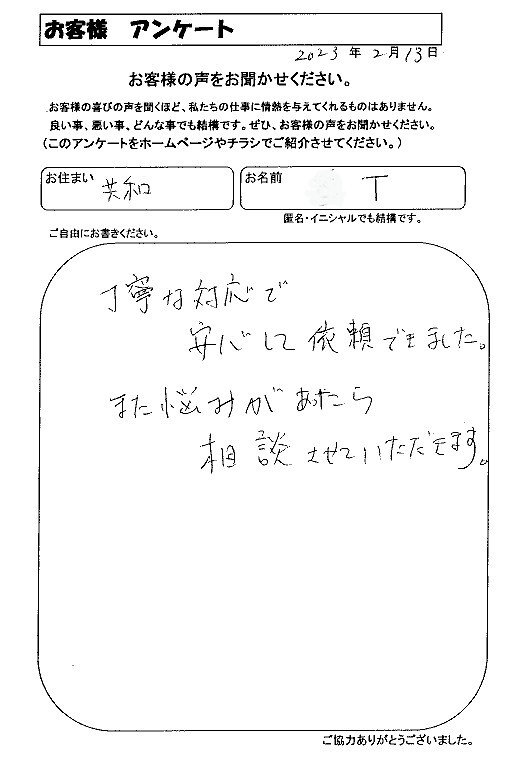 お客様 アンケート
2023 年 2 月 13 日
お客様の声をお聞かせください。
お客様の喜びの声を聞くほど、私たちの仕事に情熱を与えてくれるものはありません。
良い事、悪い事、どんな事でも結構です。ぜひ、お客様の声をお聞かせください。
(このアンケートをホームページやチラシでご紹介させてください。)
お住まい 共和
お名前 T
匿名・イニシャルでも結構です。
ご自由にお書きください。
丁寧な対応で
安心して依頼できました。
また悩みがあったら
相談させていただきます。
ご協力ありがとうございました。